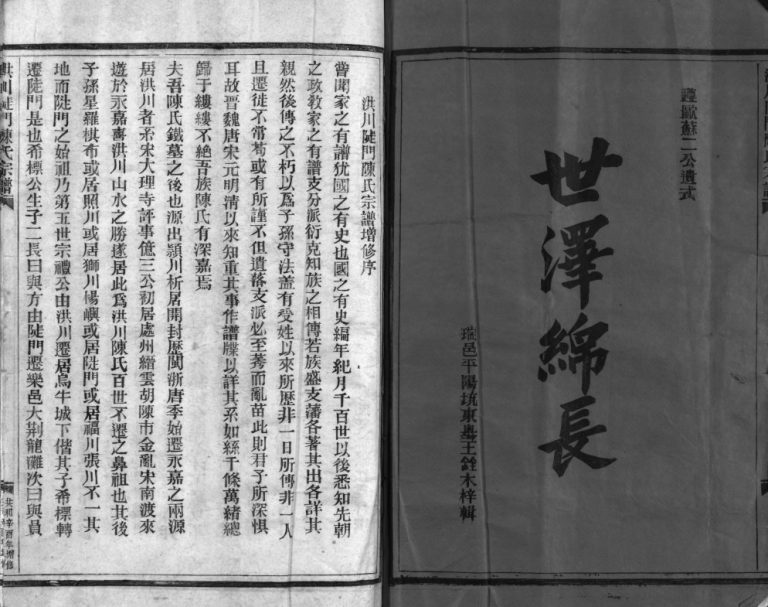 遵歐蘇二公遺式
世澤綿長
瑞邑平陽坑東㙪王銓木梓輯
洪川陡門陳氏宗譜增修序
嘗聞家之有譜犹國之有史也國之有史編年紀月千百世以後悉知先朝
之政教家之有譜支分派衍克知族之相傳若族盛支藩各著其出各詳其
親然後傳之不朽以為子孫守法盖有受姓以來所歷非一日所傳非一人
且遷徙不常苟或有所謹不但遺落支派必至莠而亂苗此則君子所深惧
耳故晋魏唐宋元明清以來知重其事作譜牒以詳其系如絲千條萬緒總
歸于縷縷不絕吾族陳氏有深嘉焉
夫吾陳氏鐵墓之後也源出潁川析居開封歷閩浙唐季始遷永嘉之兩源
居洪川者系宋大理寺評事億三公初居處州縉雲胡陳市金亂宋南渡來
遊於永嘉膺洪川山水之勝遂居此為洪川陳氏百世不遷之鼻祖也其後
子孫星羅棋布或居照川或居獅川楊嶼或居陡門或居福川張川不一其
地而陡門之始祖乃第五世宗禮公由洪川遷居烏牛城下偕其子希標轉
遷陡門是也希標公生子二長曰與方由陡門遷樂邑大荆龍灘次曰與員
洪川陡門陳氏宗譜
共和辛酉年增修